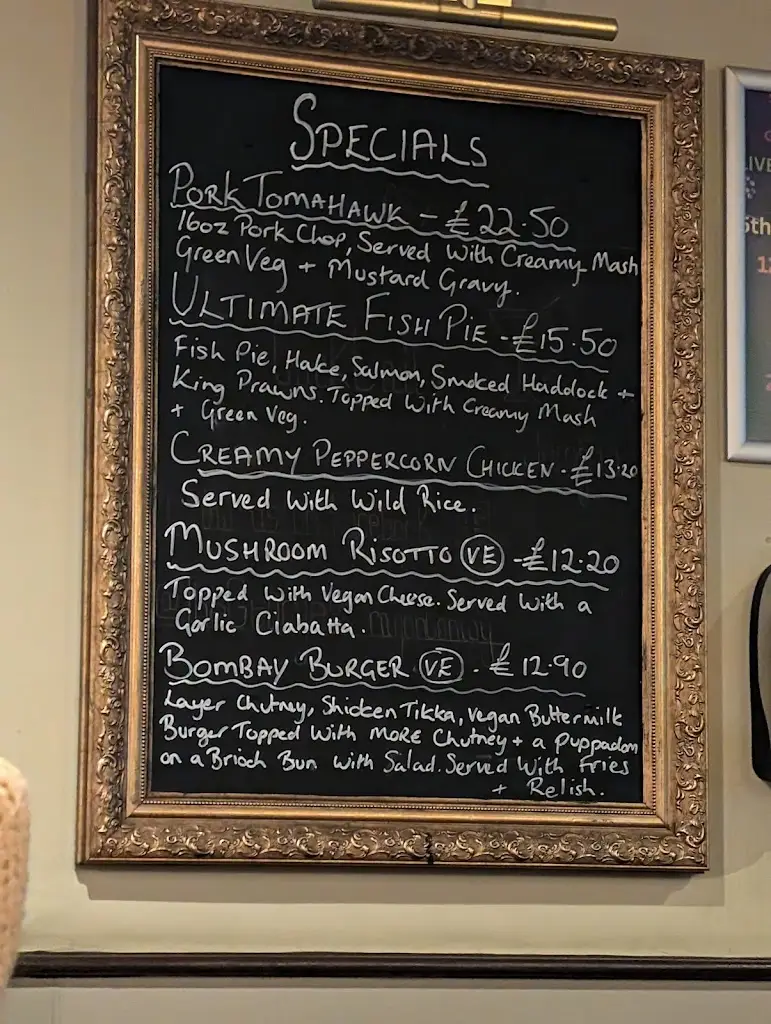 SPECIALS
PORK TOMAHAWK - £22.50
16oz Pork Chop, Served With Creamy Mash
Green Veg + Mustard Gravy.
ULTIMATE FISH PIE - £15.50
Fish Pie, Hake, Salmon, Smoked Haddock +
King Prawns. Topped With Creamy Mash
+ Green Veg.
CREAMY PEPPERCORN CHICKEN - £13.20
Served With Wild Rice.
MUSHROOM RISOTTO VE - £12.20
Topped with Vegan Cheese. Served with a
Garlic Ciabatta.
BOMBAY BURGER VE - £12.90
Layer Chutney, Shicken Tikka, Vegan Buttermilk
Burger Topped With MORE Chutney + a Puppadom
on a Brioch Bun with Salad. Served With Fries
+ Relish.
LIVE
5th